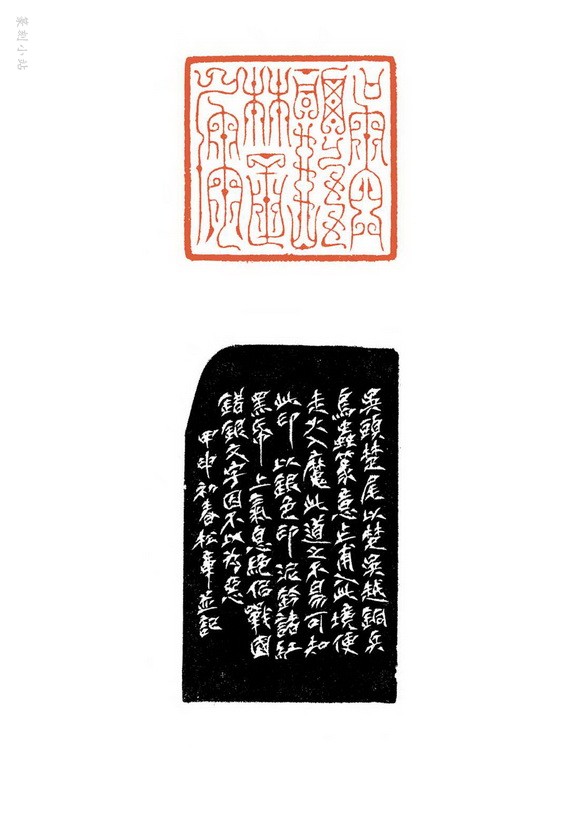 篆刻小站
吳頭楚尾以楚吳越銅兵
鳥蟲篆意上甫入此境便
走火入魔此道之不易可知
此印以銀色印泥鈐諸紅
黑帋上氣息絕佀戰國
錯銀文字因不以為惡
甲申初春松華並記